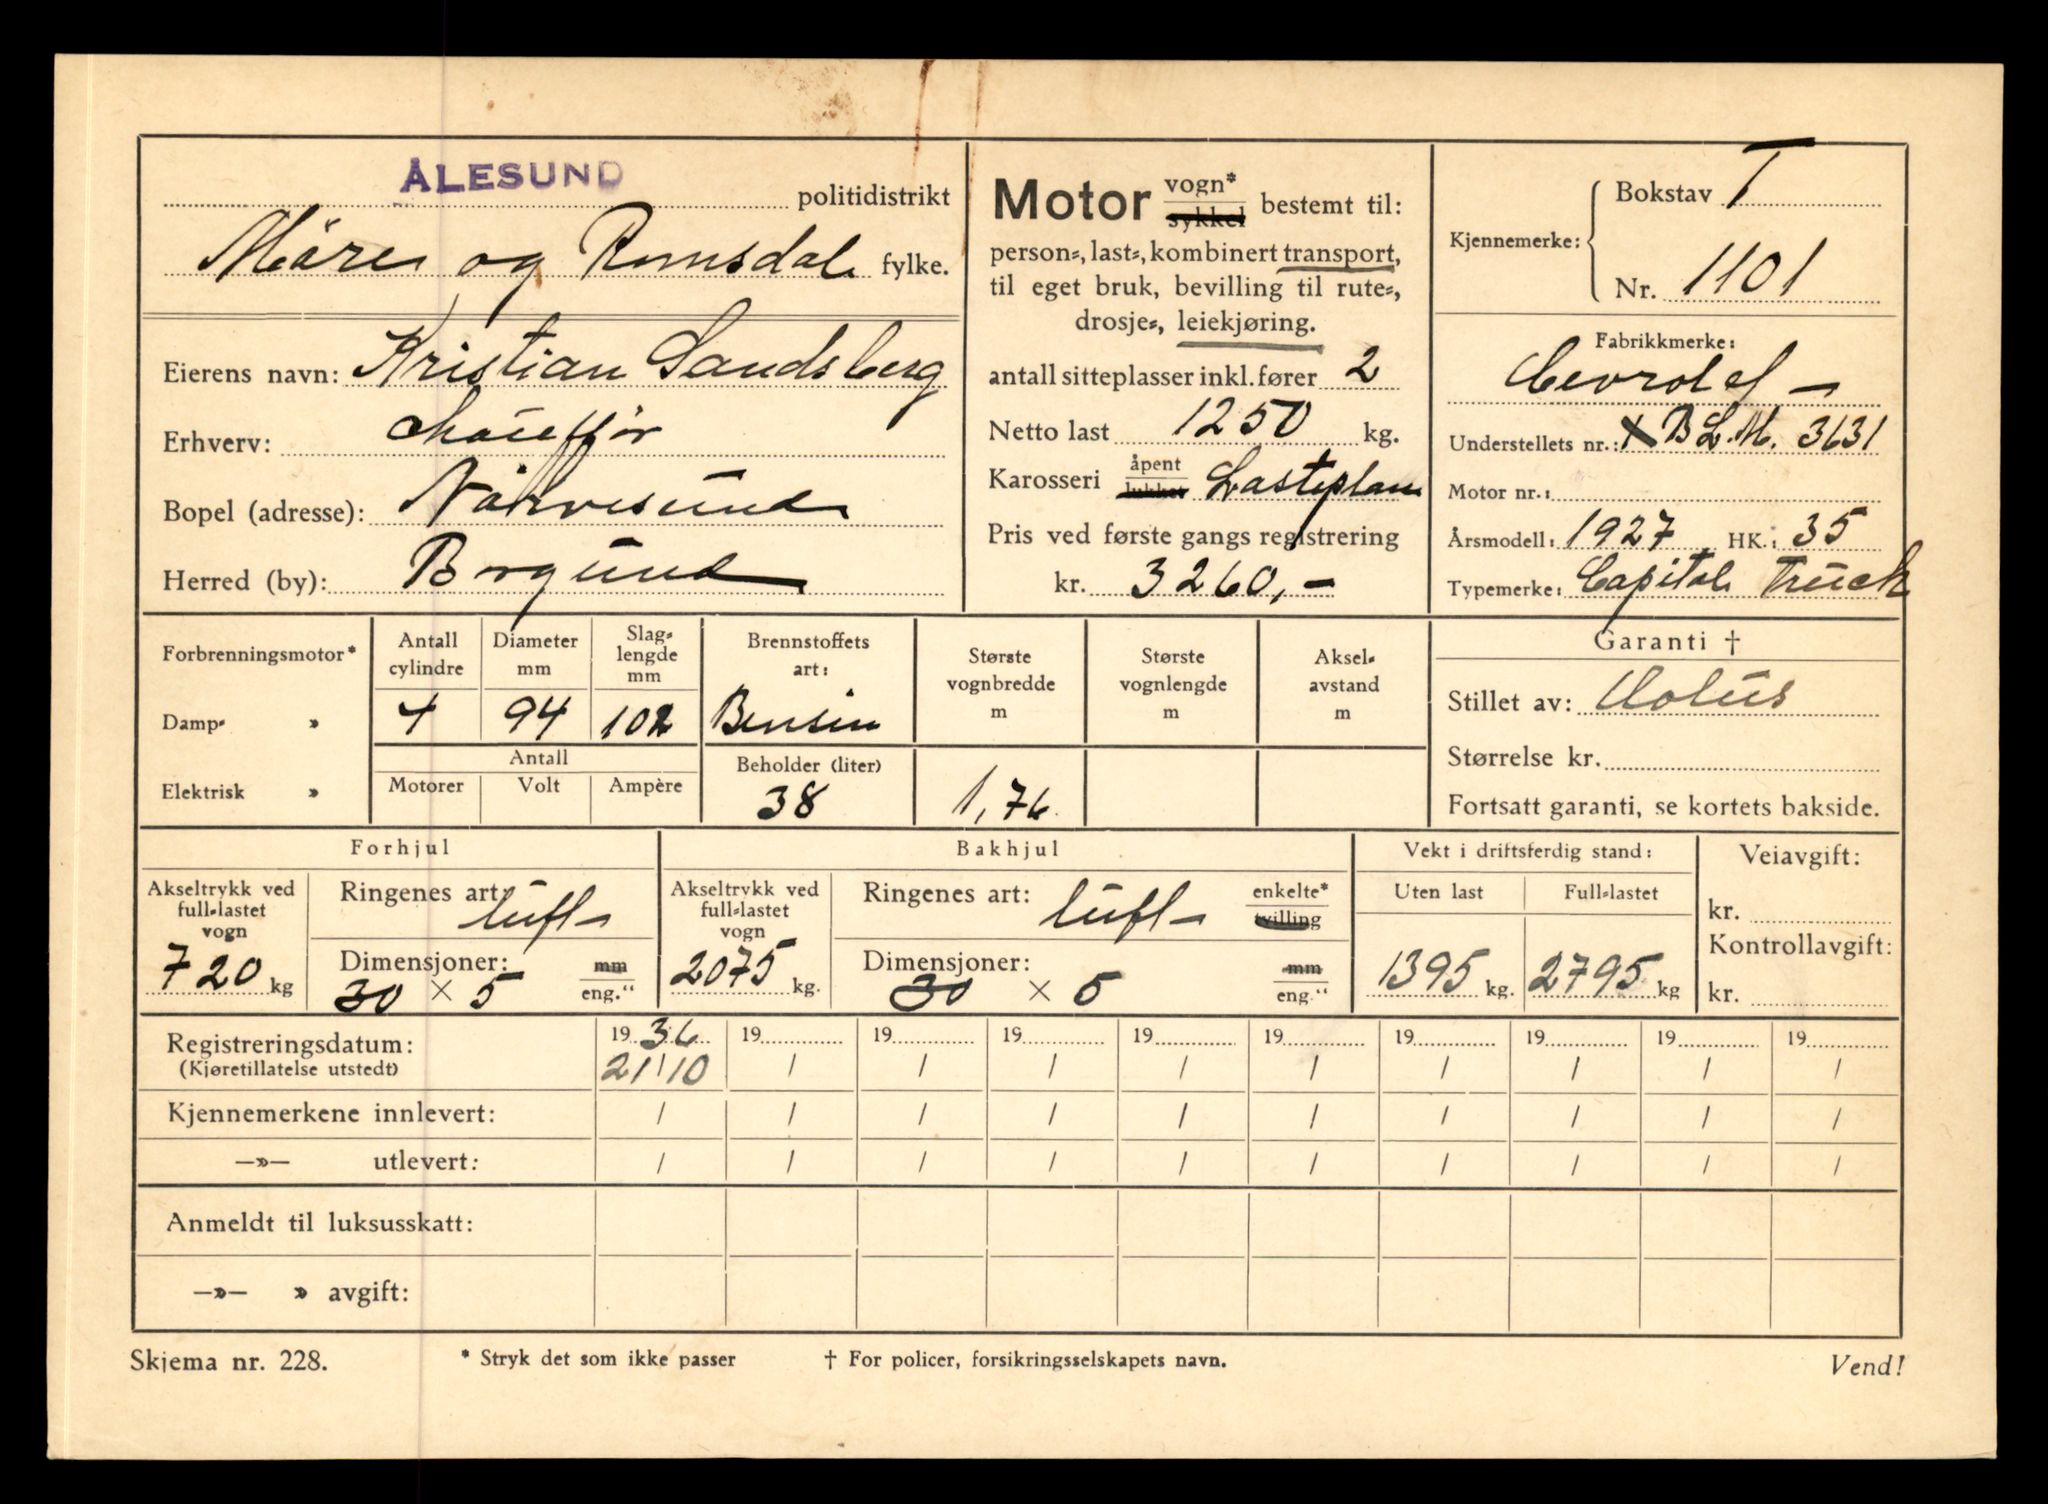 ÅLESUND politidistrikt
Møre og Romsdal fylke.
Eierens navn: Kristian Sandsberg
Erhverv: chauffør
Bopel (adresse): Nørvesund
Herred (by): Borgund
Motor vogn* sykkel bestemt til:
person-, last-, kombinert transport,
til eget bruk, bevilling til rute-,
drosje-, leiekjøring.
antall sitteplasser inkl. fører 2
Netto last 1250 kg.
Karosseri åpent lukket Lasteplan
Pris ved første gangs registrering
kr. 3260,-
Kjennemerke: Bokstav T
Nr. 1101
Fabrikkmerke:
Cevrolet -
Understellets nr.: X B L.M. 3631
Motor nr.:
Årsmodell: 1927 HK.: 35
Typemerke: Capitol Truck
Forbrenningsmotor*
Damp- »
Elektrisk »
Antall cylindre 4
Diameter mm 94
Slag-lengde mm 102
Antall
Motorer Volt Ampère
Brennstoffets art: Bensin
Beholder (liter) 38
Største vognbredde m 1,76
Største vognlengde m
Aksel-avstand m
Garanti †
Stillet av: Æolus
Størrelse kr.
Fortsatt garanti, se kortets bakside.
Forhjul
Akseltrykk ved full-lastet vogn 720 kg
Ringenes art: luft
Dimensjoner: 30 × 5 mm eng."
Bakhjul
Akseltrykk ved full-lastet vogn 2075 kg.
Ringenes art: luft enkelte* tvilling
Dimensjoner: 30 × 5 mm eng."
Vekt i driftsferdig stand:
Uten last 1395 kg.
Full-lastet 2795 kg
Veiavgift:
kr.
Kontrollavgift:
kr.
Registreringsdatum: 19 36 19 19 19 19 19 19 19 19 19
(Kjøretillatelse utstedt) 21/10 / / / / / / / / /
Kjennemerkene innlevert: / / / / / / / / / /
—»— utlevert: / / / / / / / / / /
Anmeldt til luksusskatt:
—»— » avgift:
Skjema nr. 228. * Stryk det som ikke passer † For policer, forsikringsselskapets navn. Vend!